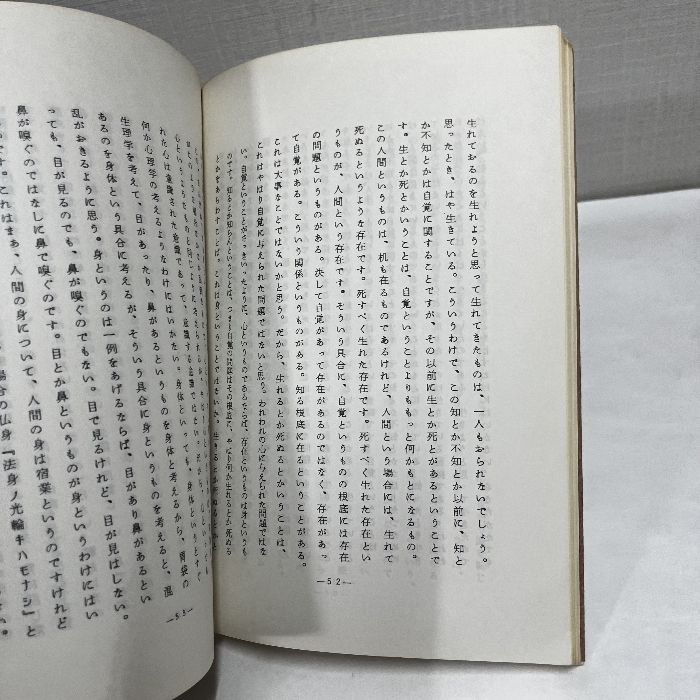 生れておるのを生れようと思って生れてきたものは、一人もおられないでしょう。
思ったとき、はや生きている。こういうわけで、この知とか不知とか以前に、知と
か不知とかは自覚に関することですが、その以前に生とか死とがあるということで
す。生とか死とかいうことは、自覚ということよりももっと何かもとになるもの。
この人間というものは、机も在るものであるけれど、人間という場合には、生れて
死ぬるというような存在です。死すべく生れた存在です。死すべく生れた存在とい
うものが、人間という存在です。そういう具合に、自覚というものの根底には存在
の問題というものがある。決して自覚があって存在があるのではなく、存在があっ
て自覚がある。こういう関係というものがある。知る根底に在るということがある。
これは大事なことではないかと思う。だから、生れるとか死ぬるとかいうことは、
これはやはり自覚に与えられた問題ではないと思う。われわれの心に与えられた問題ではな
い。自覚ということがさっきいったように、心というものであるならば、存在というものは身というも
のです。知るとか知らんということは、つまり自覚の問題はその根底に、やはり何か生れるとか死ぬる
とかをあらわすことば。これは身ということではないか。
—52—
れた心は意識された意識であって、意識する意識ではない。
何か心理学の考えるようなわけにはいかない。身体といっても、胃袋の
生理学を考えて、目があったり、鼻があるというものを身体と考えるから、混
あるのを身体という具合に考えるが、そういう具合に身というものを考えると、
乱がおきるように思う。身というのは一例をあげるならば、目があり鼻があるとい
っても、目が見るのでも、鼻が嗅ぐのでもない。目で見るけれど、目が見はしない。
鼻が嗅ぐのではなしに鼻で嗅ぐのです。目とか鼻というものが身というわけにはい
これはまあ、人間の身について、人間の身は宿業というのですけれど
場合の仏身『法身ノ光輪キハモナシ』と
—53—